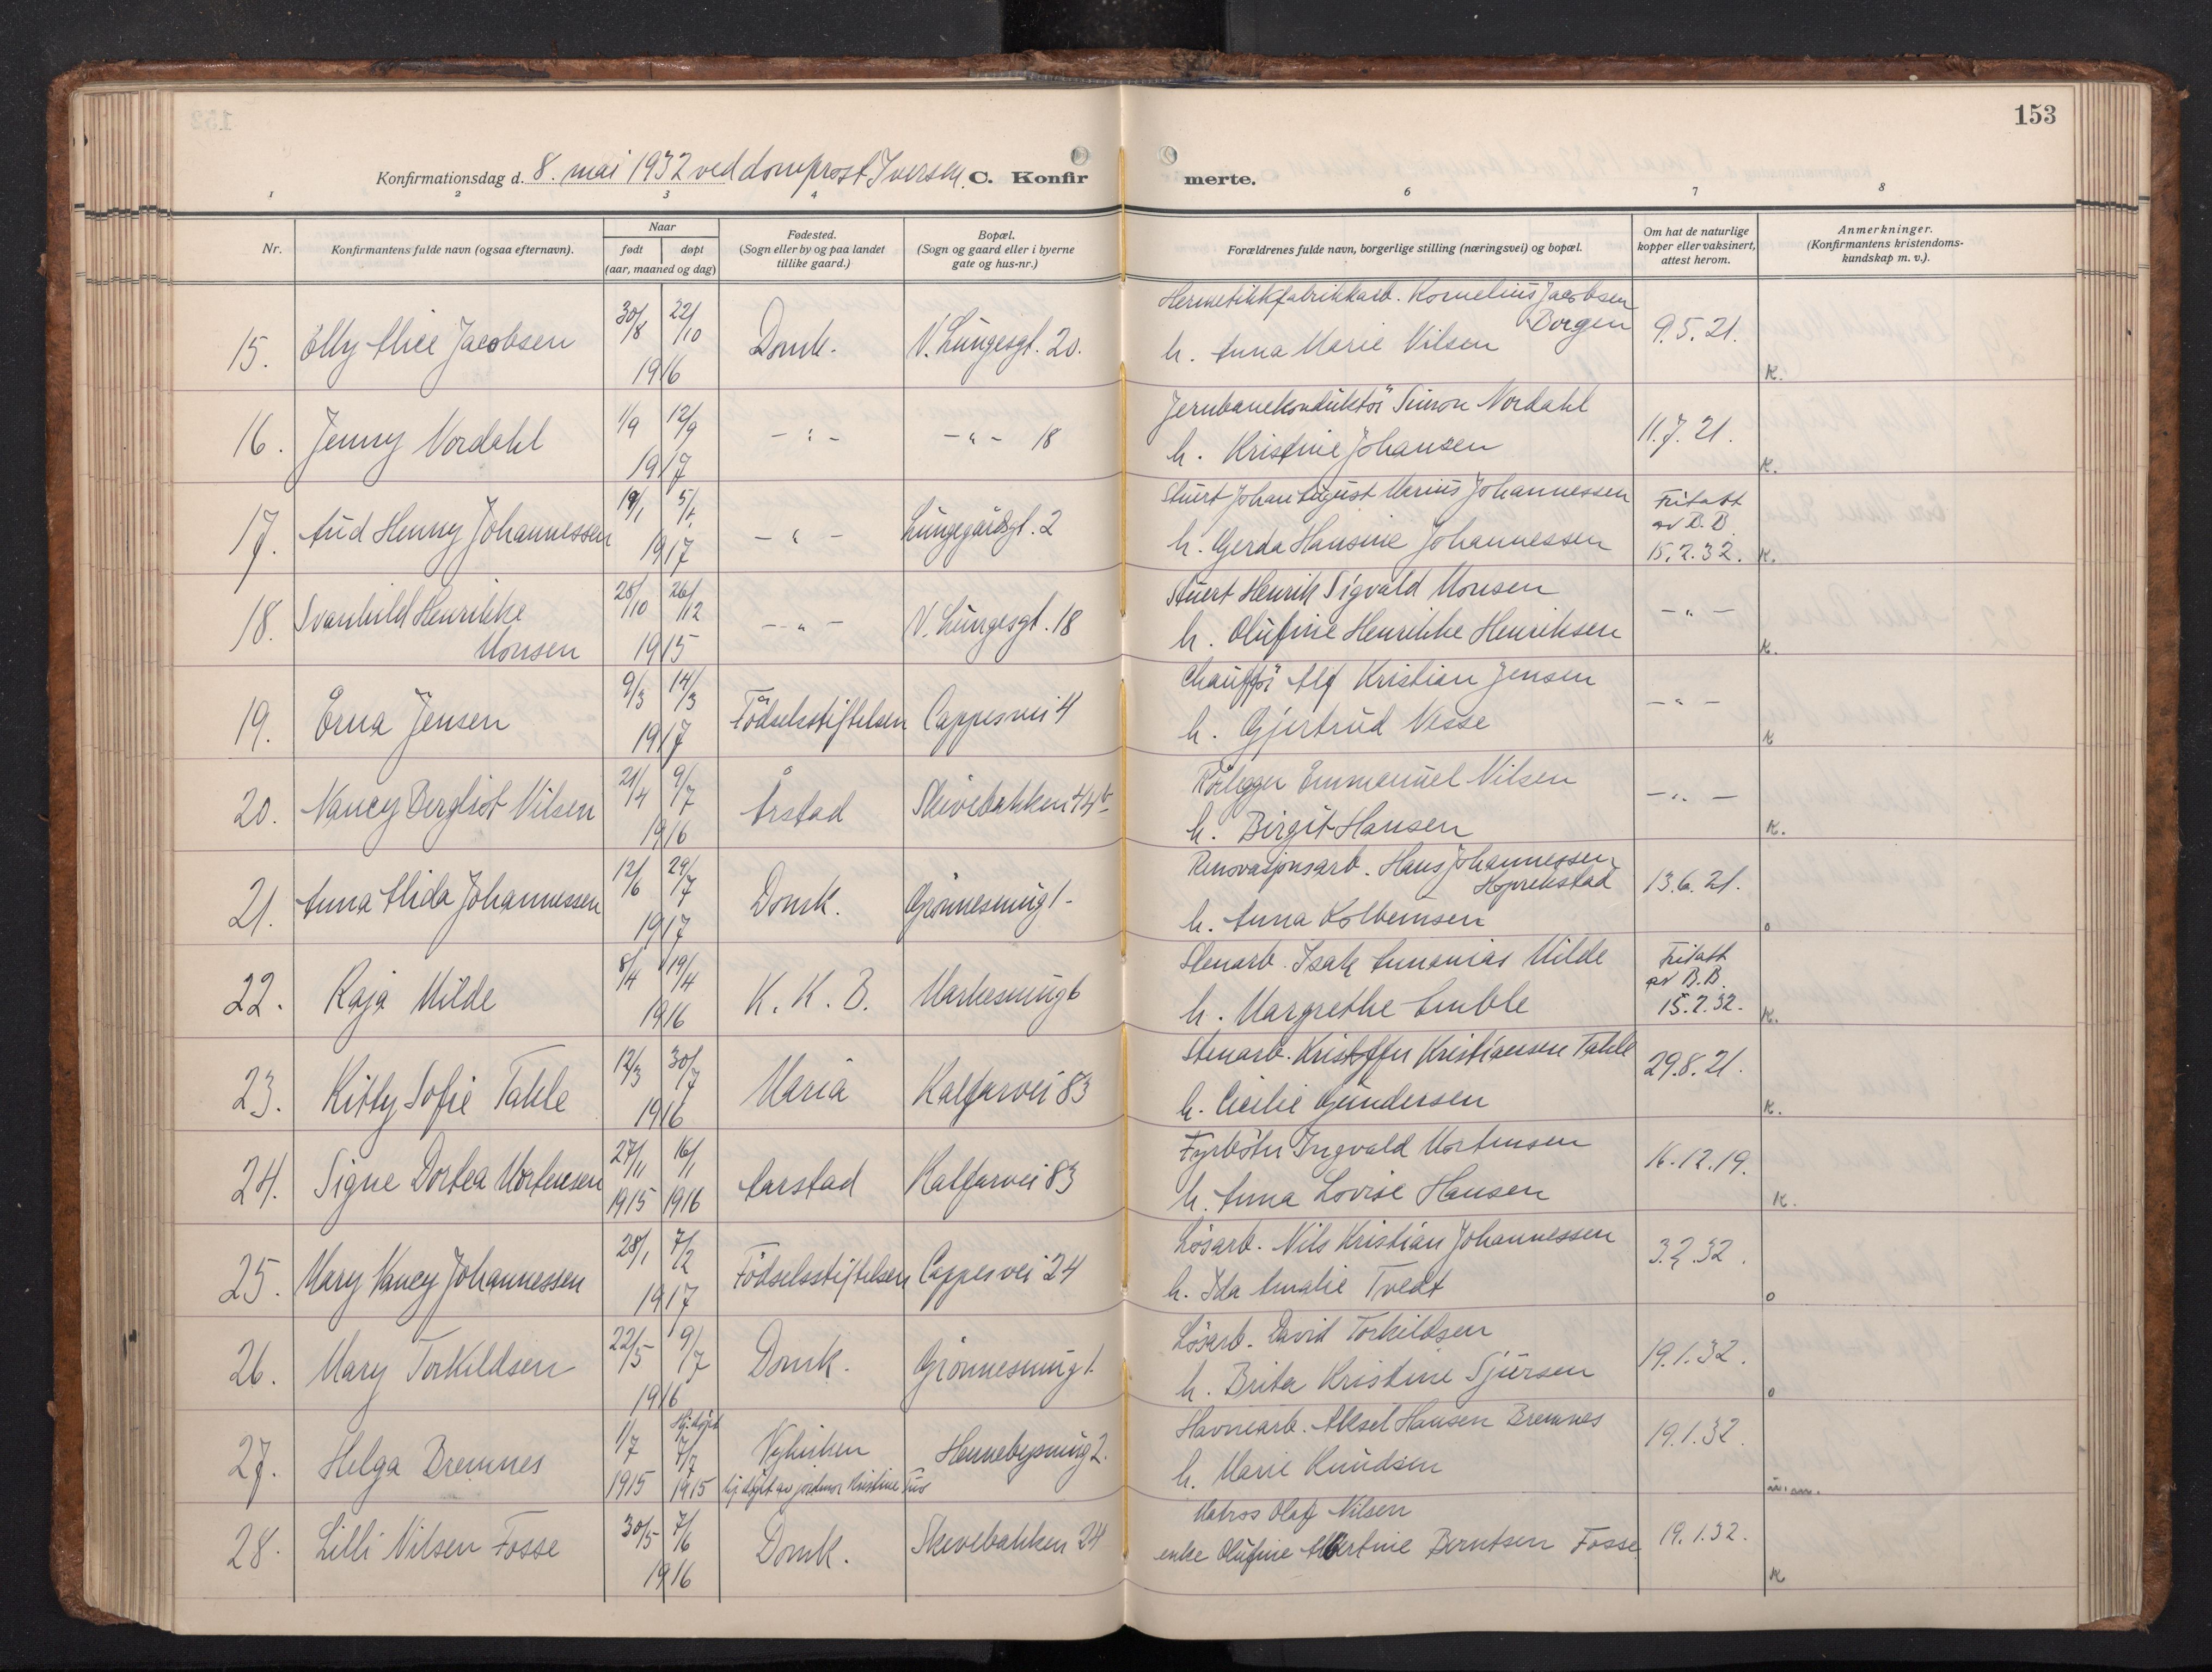 153
Konfirmationsdag d. 8. mai 1932 ved domprost Iversen. C. Konfirmerte.
1 2 3 4 6 7 8
Nr. Konfirmantens fulde navn (ogsaa efternavn). Naar født døpt (aar, maaned og dag) Fødested. (Sogn eller by og paa landet tillike gaard.) Bopæl. (Sogn og gaard eller i byerne gate og hus-nr.) Forældrenes fulde navn, borgerlige stilling (næringsvei) og bopæl. Om hat de naturlige kopper eller vaksinert, attest herom. Anmerkninger. (Konfirmantens kristendoms-kundskap m. v.).
15. Elly Alice Jacobsen 30/8 22/10 1916 Domk. N. Lungesgt. 20. Hermetikkfabrikkarb. Kornelius Jacobsen Borgen
h. Anna Marie Nilsen 9.5.21. K.
16. Jenny Nordahl 1/9 12/9 1917 - " - - " - 18 Jernbanekonduktör Simon Nordahl
h. Kristine Johansen 11.7.21. K.
17. Aud Henny Johannessen 19/1 5/1. 1917 - " - Lungegårdsgt. 2 Stuert Johan August Marius Johannessen
h. Gerda Hansine Johannessen Fritatt av B.B. 15.2.32. K.
18. Svanhild Henrikke Monsen 28/10 26/12 1915 - " - N. Lungesgt. 18 Stuert Henrik Sigvald Monsen
h. Olufine Henrikke Henriksen - " - K.
19. Erna Jensen 9/3 14/3 1917 Födselsstiftelsen Cappesvei 4 Chaufför Alf Kristian Jensen
h. Gjertrud Nesse - " - K
20. Nancy Bergliot Nilsen 21/4 9/7 1916 Årstad Skivebakken 44b Rörlegger Emmanuel Nilsen
h. Birgit Hansen - " - K.
21. Anna Alida Johannessen 12/6 29/7 1917 Domk. Grønnesmug 1 - Renovasjonsarb. Hans Johannessen Hoprekstad
h. Anna Kolbeinsen 13.6.21. o
22. Kaja Milde 8/4 19/4 1916 K.K.B. Markesmug 6 Stenarb. Isak Annanias Milde
h. Margrethe Amble Fritatt av B.B. 15.2.32. K.
23. Kitty Sofie Takle 12/3 30/7 1916 Maria Kalfarvei 83 Stenarb. Kristoffer Kristiansen Takle
h. Cicilie Gundersen 29.8.21. K.
24. Signe Dortea Mortensen 27/11 1915 16/1 1916 Aarstad Kalfarvei 83 Fyrböter Ingvald Mortensen
h. Anna Lovise Hansen 16.12.19. K.
25. Mary Nancy Johannessen 28/1 7/2 1917 Födselsstiftelsen Cappesvei 24 Lösarb. Nils Kristian Johannessen
h. Ida Amalie Tvedt 3.2.32. o
26. Mary Torkildsen 22/5 9/7 1916 Domk. Grönnesmug 1. Lösarb. David Torkildsen
h. Brita Kristine Sjursen 19.1.32. o
27. Helga Bremnes 1/7 1915 Hj.døpt 7/7 1915 Nykirken hj.døpt av jordmor Kristine Hennebysmug 2. Havnearb. Aksel Hansen Bremnes
h. Marie Knudsen 19.1.32.
28. Lilli Nilsen Fosse 30/5 7/6 1916 Domk. Skivebakken 24 Matros Olaf Nilsen
enke Olufine Albertine Berntsen Fosse 19.1.32. K